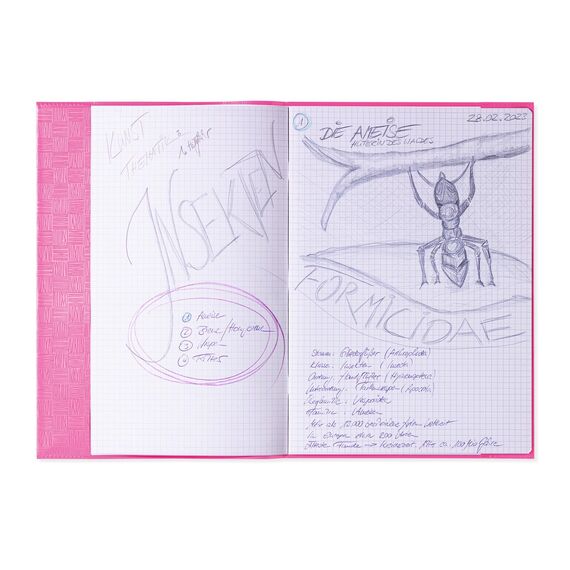 KUNST
INSEKTEN
1 Ameise
2 Biene/
3
4
1
28.02.2023
DIE AMEISE
HÜTERIN DES WALDES
FORMICIDAE
Stamm: Gliederfüßer (Arthropoda)
Klasse: Insekten (Insecta)
Ordnung: Hautflügler (Hymenoptera)
Unterordnung: Taillenwespen (Apocrita)
Überfamilie: Vespoidea
Familie: Ameisen
Mehr als 12.000 Arten
In Europa etwa 200 Arten
Fossile Funde → Kreidezeit, ca. 100 Mio Jahre